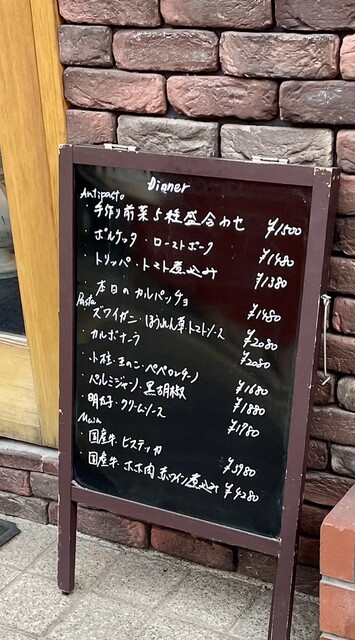 Dinner
Antipasto
手作り前菜5種盛合わせ ¥1500
・ポルケッタ・ローストポーク ¥1480
・トリッパ・トマト煮込み ¥1380
・本日のカルパッチョ ¥1480
Pasta
・ズワイガニ・ほうれん草トマトソース ¥2080
・カルボナーラ ¥2080
・小柱・きのこ・ペペロンチーノ ¥1680
・パルミジャーノ・黒胡椒 ¥1880
・明太子・クリームソース ¥1780
Main
・国産牛・ビステッカ ¥3980
・国産牛・ホホ肉赤ワイン煮込み ¥4280